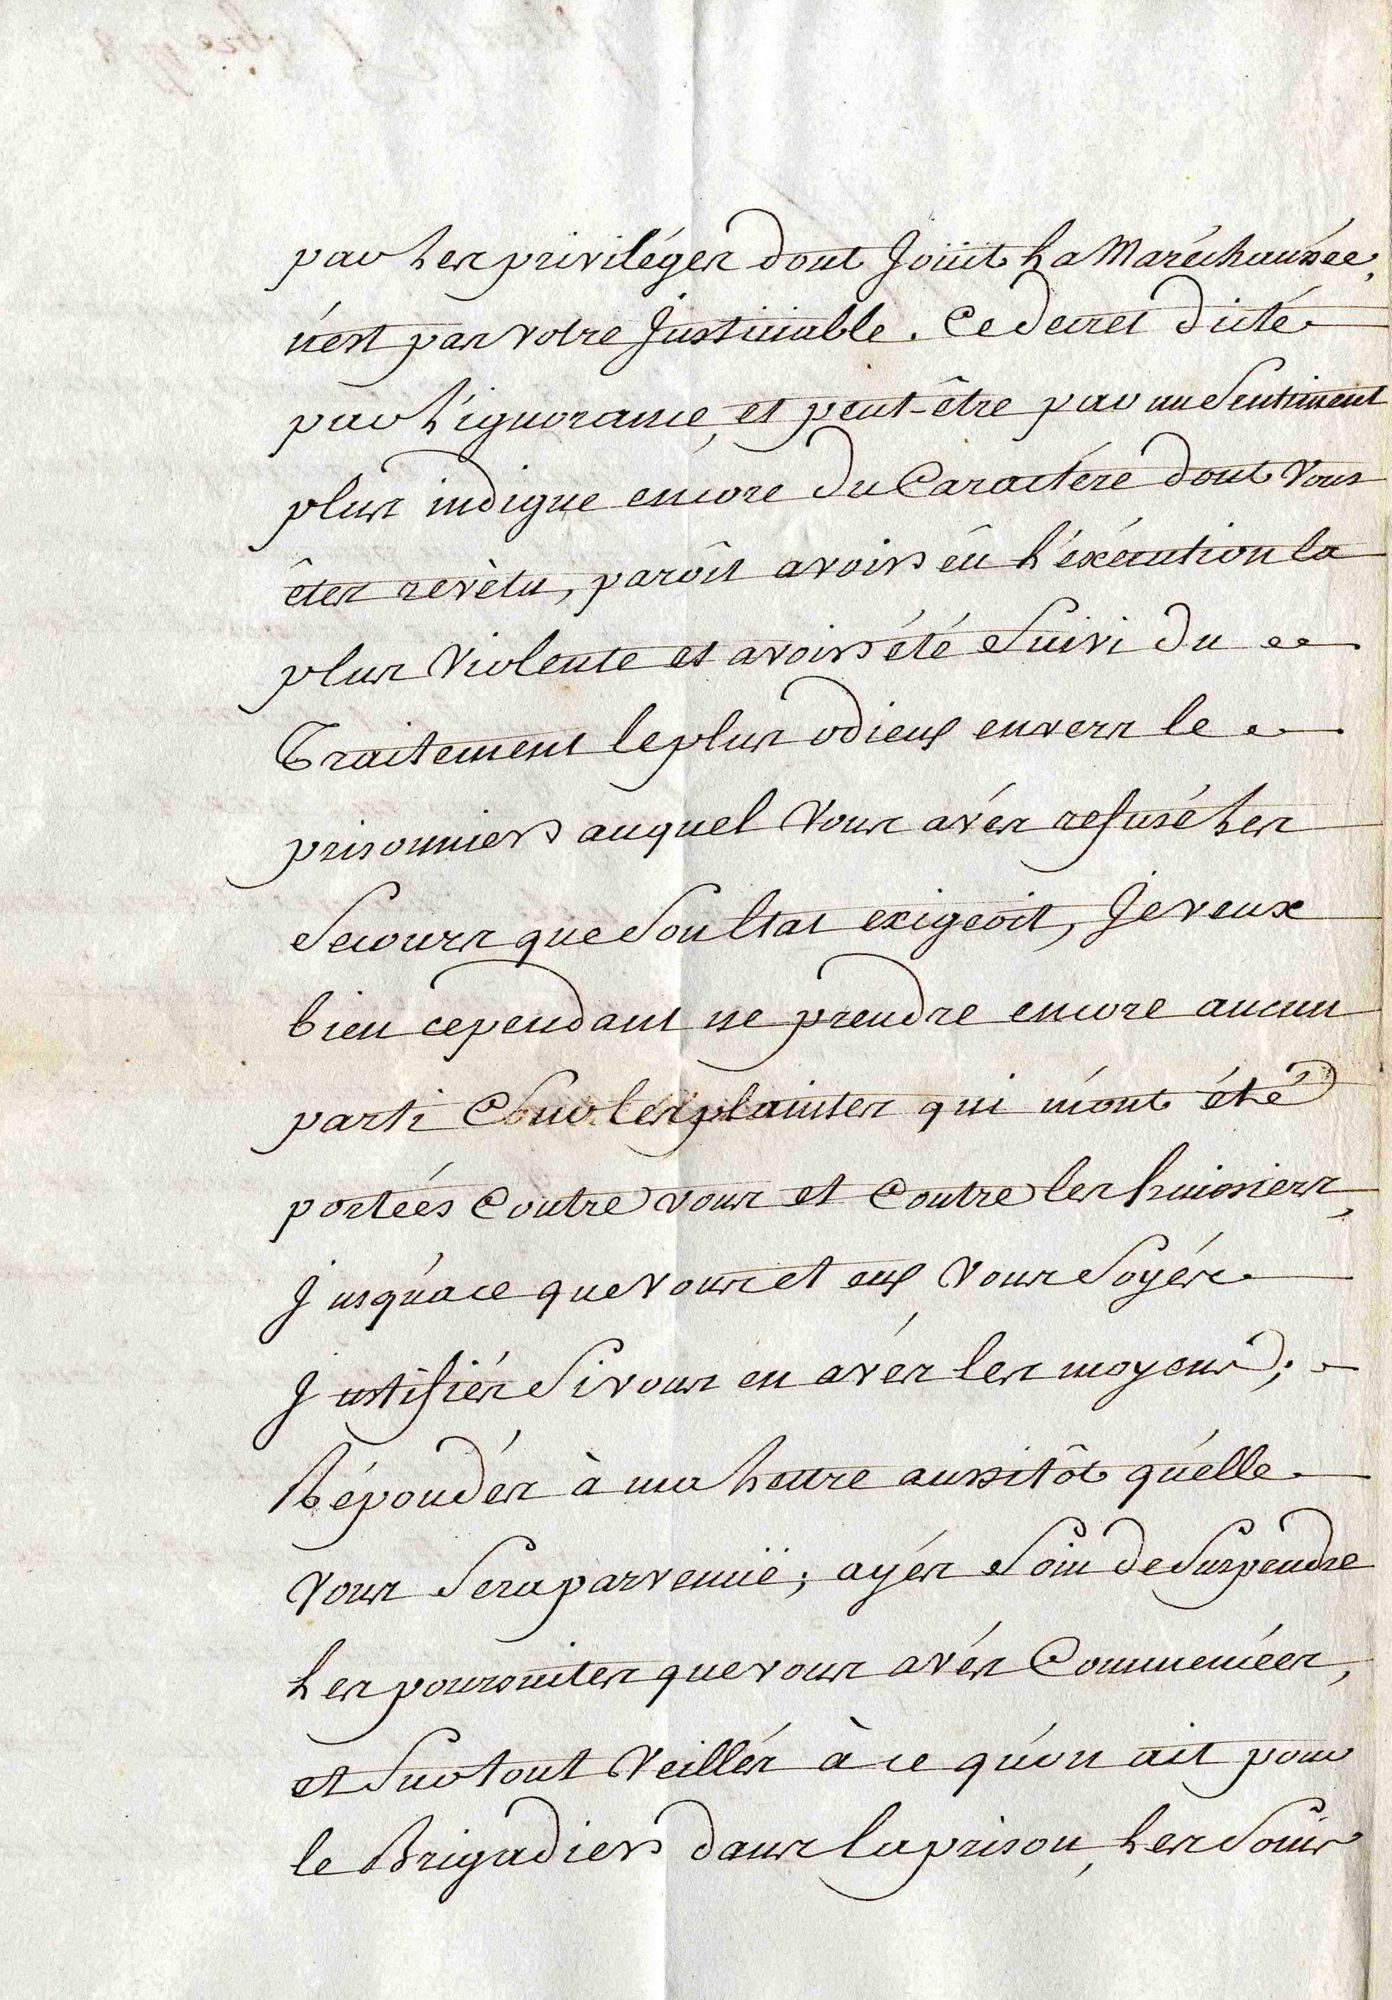 par les priviléges dont Joüit La Maréchaussée,
n'est pas votre Justiciable. Ce decret dicté
par l'ignorance, et peut-être par un Sentiment
plus indigne encore du Caractére dont Vous
êtes revètu, paroît avoir eû l'éxécution la
plus Violente et avoir été Suivi du
Traitement le plus odieux envers le
prisonnier auquel Vous avés refusé les
Secours que Son Etat exigeoit, Je veux
bien cependant ne prendre encore aucun
parti Sur les plaintes qui m'ont été
portées Contre vous et Contre les huissiers,
Jusqu'a ce que vous et eux Vous Soyés
Justifiés Si vous en avés les moyens;
Répondés à ma Lettre aussitôt qu'elle
Vous Sera parvenuë; ayés Soin de Suspendre
Les poursuites que vous avés Commencées,
et Surtout Veillés à ce qu'on ait pour
le Brigadier dans la prison, Les Soins